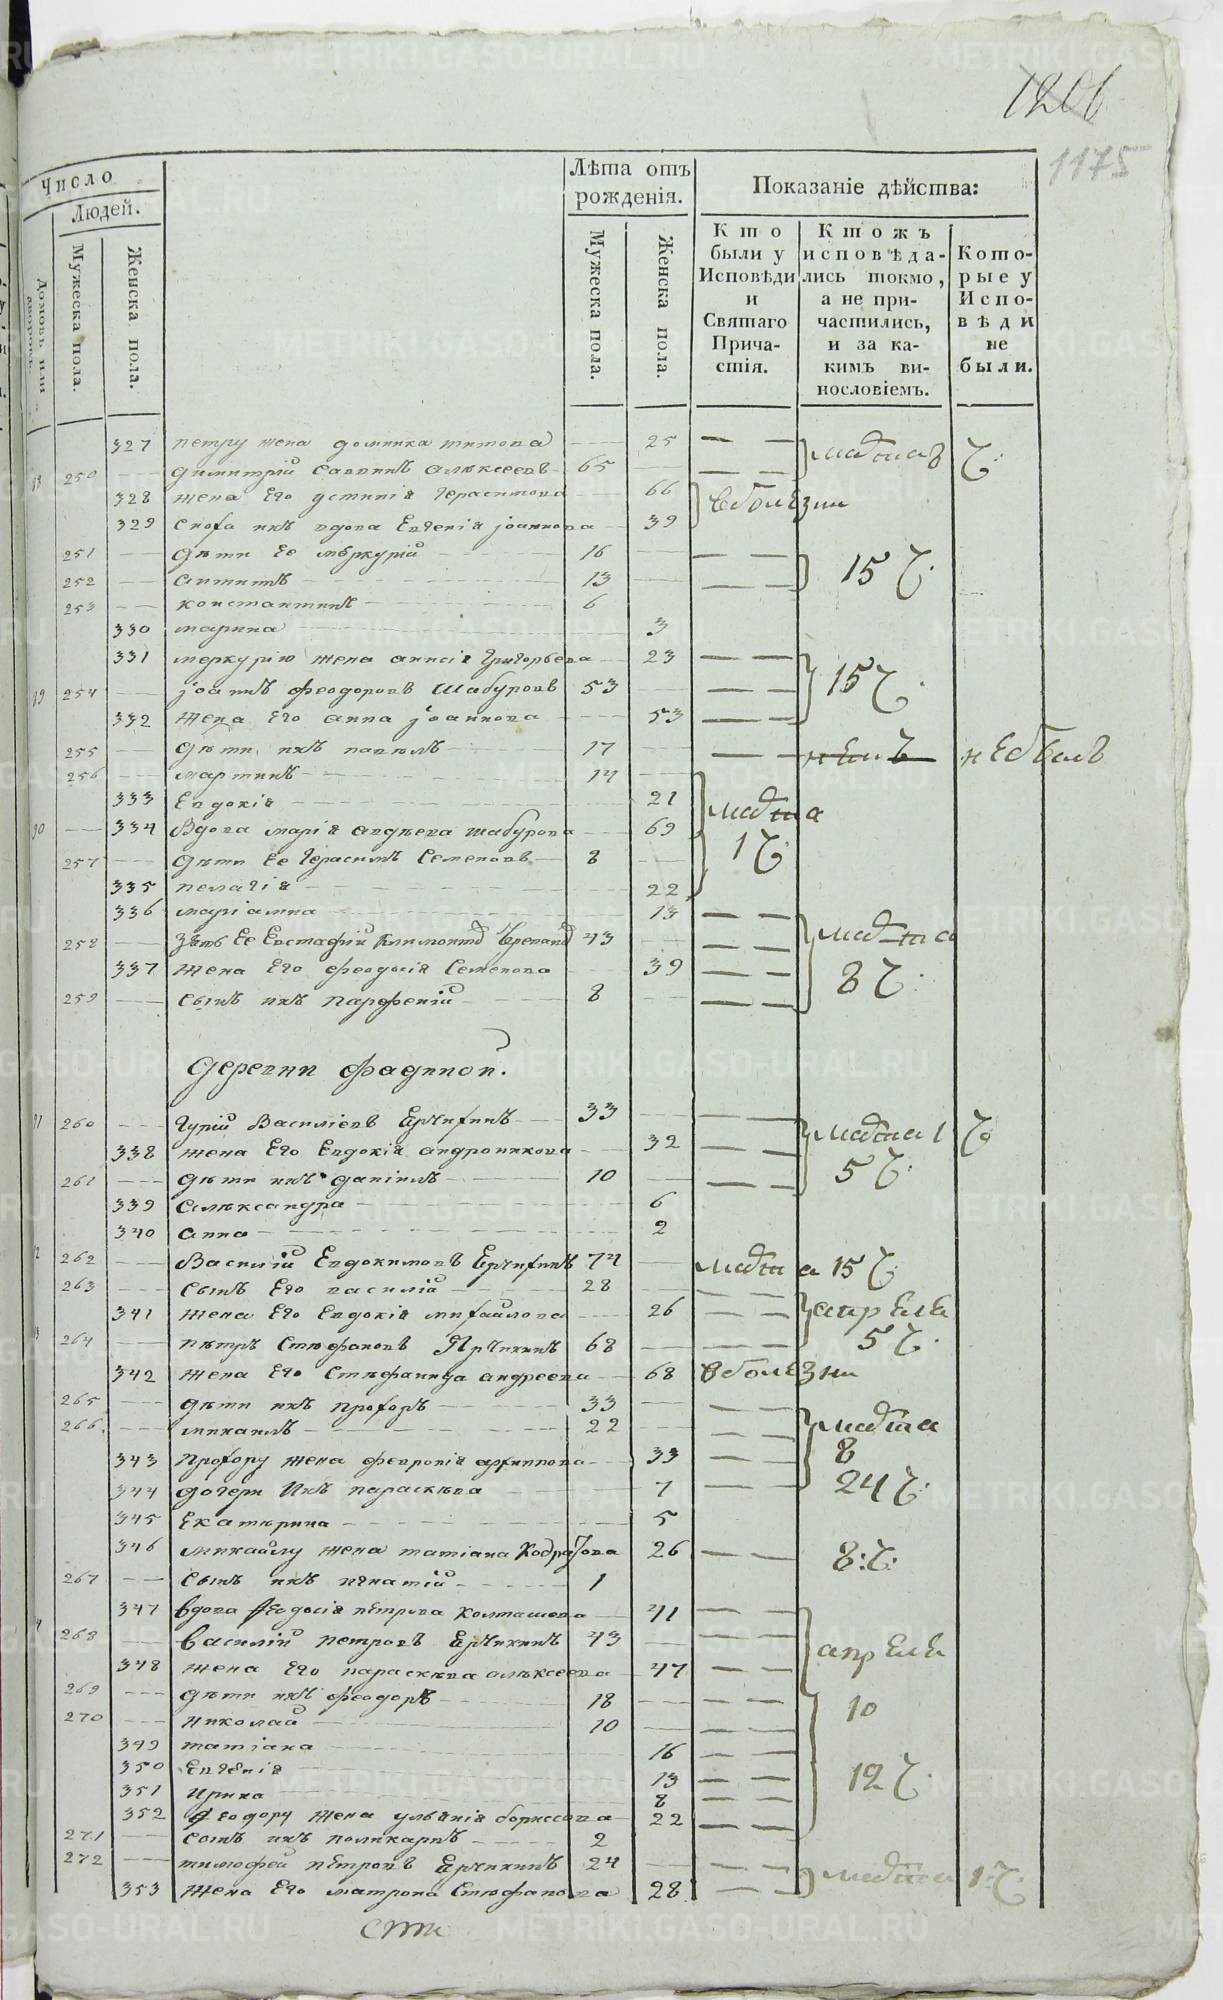 1206
1175
Число
Людей.
Домовъ или дворовъ.
Мужеска пола.
Женска пола.
Лѣта отъ рожденія.
Мужеска пола.
Женска пола.
Показаніе дѣйства:
Кто были у Исповѣди и Святаго Причастія.
Ктожъ исповѣдались токмо, а не причастились, и за какимъ винословіемъ.
Которые у Исповѣди не были.
327 петру жена домника титова 25
250 димитрій Саввинъ алексеевъ 65
328 жена Его устинія Герасимова 66 в болѣзни
329 сноха ихъ вдова Евгенія іоаннова 39
251 дѣти Ее меркурій 16
252 антипъ 13 15 Ч.
253 константинъ 6
330 марина 3
331 меркурію жена анисія Григорьева 23
254 іоаннъ феодоровъ Шабуровъ 53 15 Ч.
332 жена Его анна іоаннова 53
255 дѣти ихъ павелъ 17 не былъ
256 мартинъ 14
333 Евдокія 21 марта
334 Вдова марія авдѣева шабурова 69
257 дѣти Ее Герасимъ Семеновъ 8 1 Ч.
335 пелагія 22
336 маріамна 13 марта
258 Зять Ее Евстафій 43
337 жена Его феодосія Семенова 39 8 Ч.
259 сынъ ихъ Парфеній 8
деревни фадиной.
260 Гурій Василіевъ Ерчихинъ 33 марта 1 Ч.
338 жена Его Евдокія андроникова 32
261 дѣти ихъ даніилъ 10 5 Ч.
339 александра 6
340 анна 2
262 Василій Евдокимовъ Ерчихинъ 74 марта 15 Ч.
263 сынъ Его василій 28
341 жена Его Евдокія михайлова 26 апреля
264 петръ Стефановъ Ярчихинъ 68 5 Ч.
342 жена Его Стефанида андреева 68 в болѣзни
265 дѣти ихъ прохоръ 33
266 михаилъ 22 марта
343 прохору жена феврониія архиппова 33 8
344 дочери ихъ параскева 7 24 Ч.
345 Екатерина 5
346 михайлу жена татіана Кодратова 26 8: Ч:
267 сынъ ихъ игнатій 1
347 вдова феодосія петрова колташева 41
268 василій петровъ Ерчихинъ 43 апреля
348 жена Его параскева алексеева 47
269 дѣти ихъ феодоръ 18
270 николай 10 10
349 татіана 16
350 Евгенія 13 12 Ч.
351 ирина 8
352 феодору жена ульянія борисова 22
271 сынъ ихъ поликарпъ 2
272 тимофей петровъ Ерчихинъ 24
353 жена Его матрона Стефанова 28 марта 1: Ч: